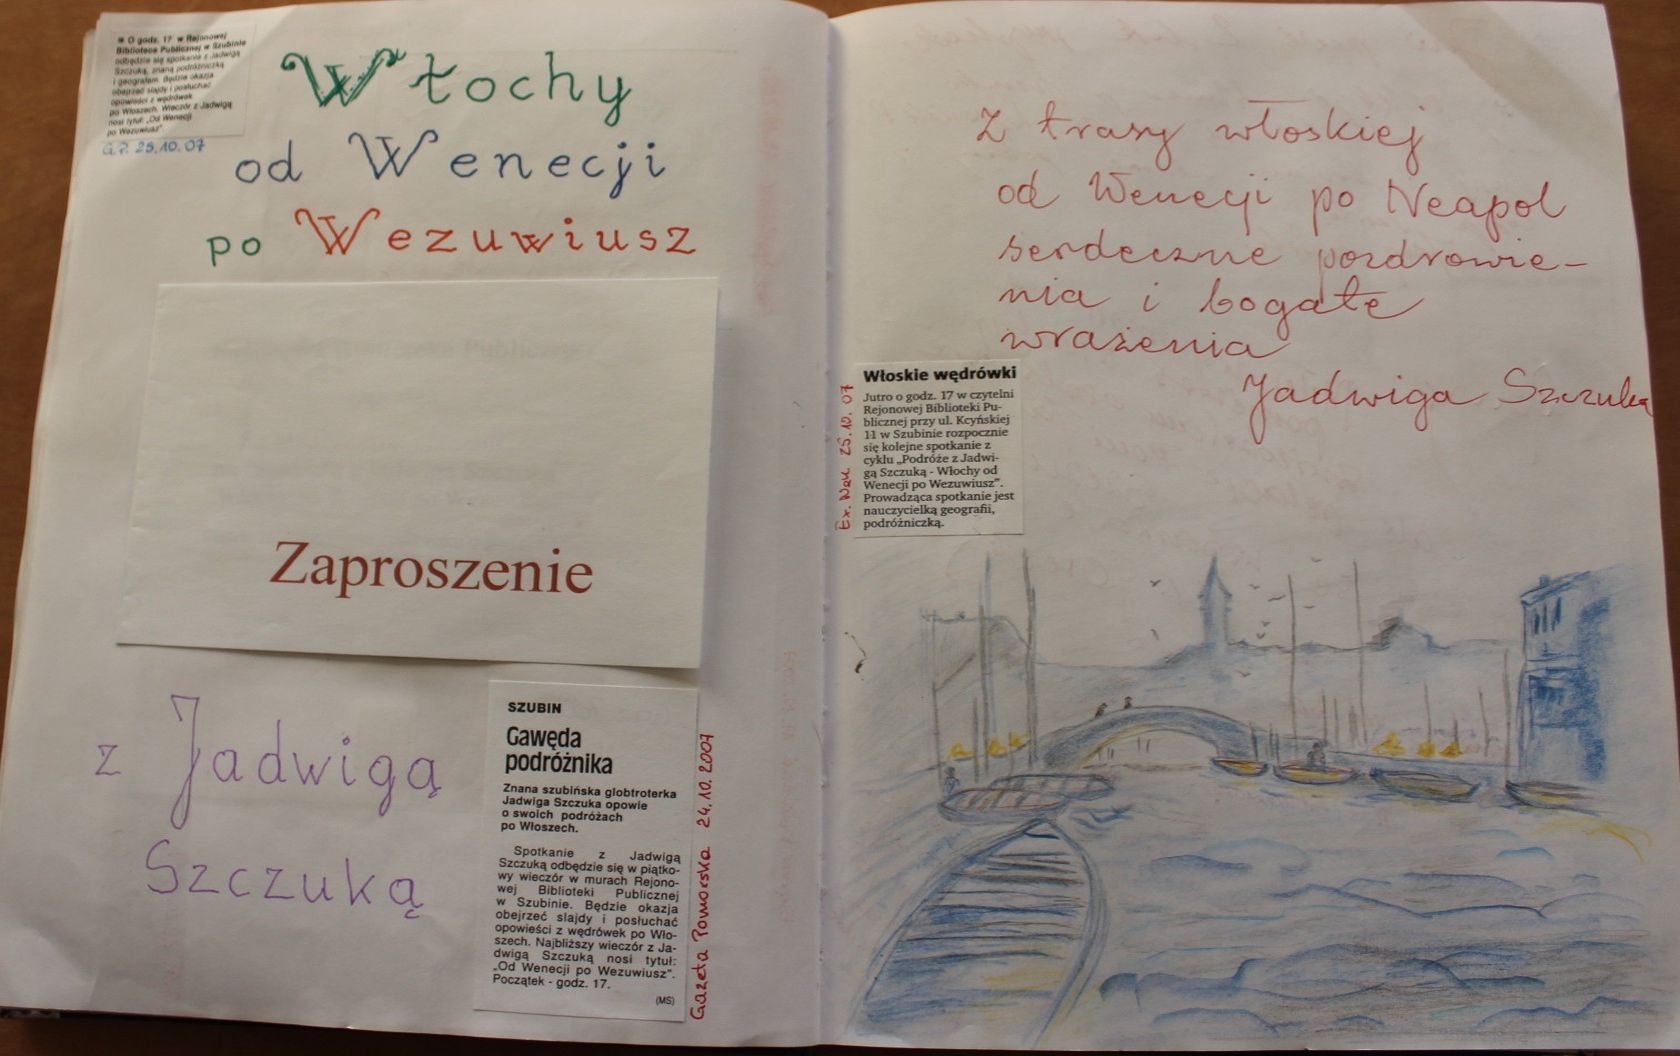 * O godz. 17 w Rejonowej
Bibliotece Publicznej w Szubinie
odbędzie się spotkanie z Jadwigą
Szczuką, znaną podróżniczką
i geografem. Będzie okazja
obejrzeć slajdy i posłuchać
opowieści z wędrówek
po Włoszech. Wieczór z Jadwigą
nosi tytuł: „Od Wenecji
po Wezuwiusz”.
G.P. 25.10.07
Włochy
od Wenecji
po Wezuwiusz
Zaproszenie
z Jadwigą
Szczuką
SZUBIN
Gawęda
podróżnika
Znana szubińska globtroterka
Jadwiga Szczuka opowie
o swoich podróżach
po Włoszech.
Spotkanie z Jadwigą
Szczuką odbędzie się w piątko-
wy wieczór w murach Rejono-
wej Biblioteki Publicznej
w Szubinie. Będzie okazja
obejrzeć slajdy i posłuchać
opowieści z wędrówek po Wło-
szech. Najbliższy wieczór z Ja-
dwigą Szczuką nosi tytuł:
„Od Wenecji po Wezuwiusz”.
Początek - godz. 17.
(MS)
Gazeta Pomorska 24.10.2007
Z trasy włoskiej
od Wenecji po Neapol
serdeczne pozdrowie-
nia i bogate
wrażenia
Jadwiga Szczuka
Ex. Nak. 25.10.07
Włoskie wędrówki
Jutro o godz. 17 w czytelni
Rejonowej Biblioteki Pu-
blicznej przy ul. Kcyńskiej
11 w Szubinie rozpocznie
się kolejne spotkanie z
cyklu „Podróże z Jadwi-
gą Szczuką - Włochy od
Wenecji po Wezuwiusz”.
Prowadząca spotkanie jest
nauczycielką geografii,
podróżniczką.